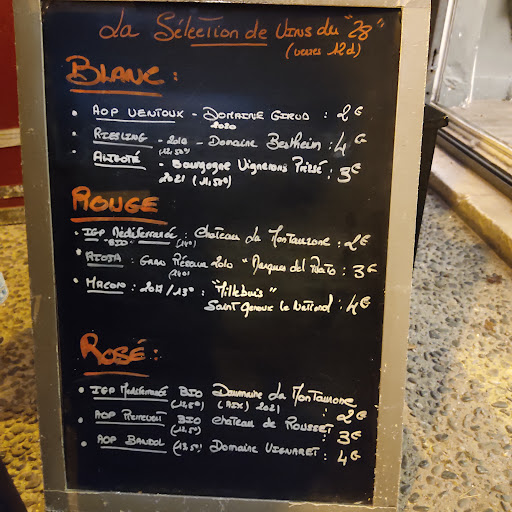 La Sélection de Vins du "28"
(verres 12cl)
BLANC :
• AOP VENTOUX - DOMAINE GIROD : 2€
2020
• RIESLING - 2016 - Domaine Bestheim : 4€
(12.50°)
• ALIGOTÉ - Bourgogne Vignerons : 3€
2021 (11.50°)
ROUGE
• IGP Méditerranée : Chateau La Montaurone : 2€
"BIO" (14°)
• RIOJA : GRAN RÉSERVA 2010 "Marques del : 3€
(14°)
• MACON : 2017 / 13° : "Millebuis"
Saint Gengoux le National : 4€
ROSÉ :
• IGP Méditerranée BIO Dommaine La Montaurone
(12,50°) (AIX) 2021 : 2€
• AOP BIO Chateau de ROUSSET : 3€
(12,50°)
• AOP BANDOL (13.50°) Domaine VIGNARET : 4€